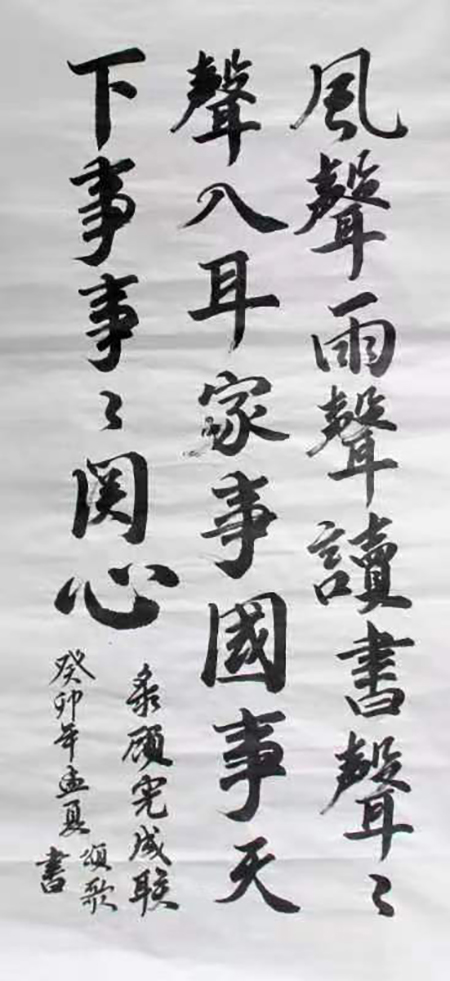 風聲雨聲讀書聲〻
聲入耳家事國事天
下事事〻関心
录顾宪成联
癸卯年孟夏
頌歌
書